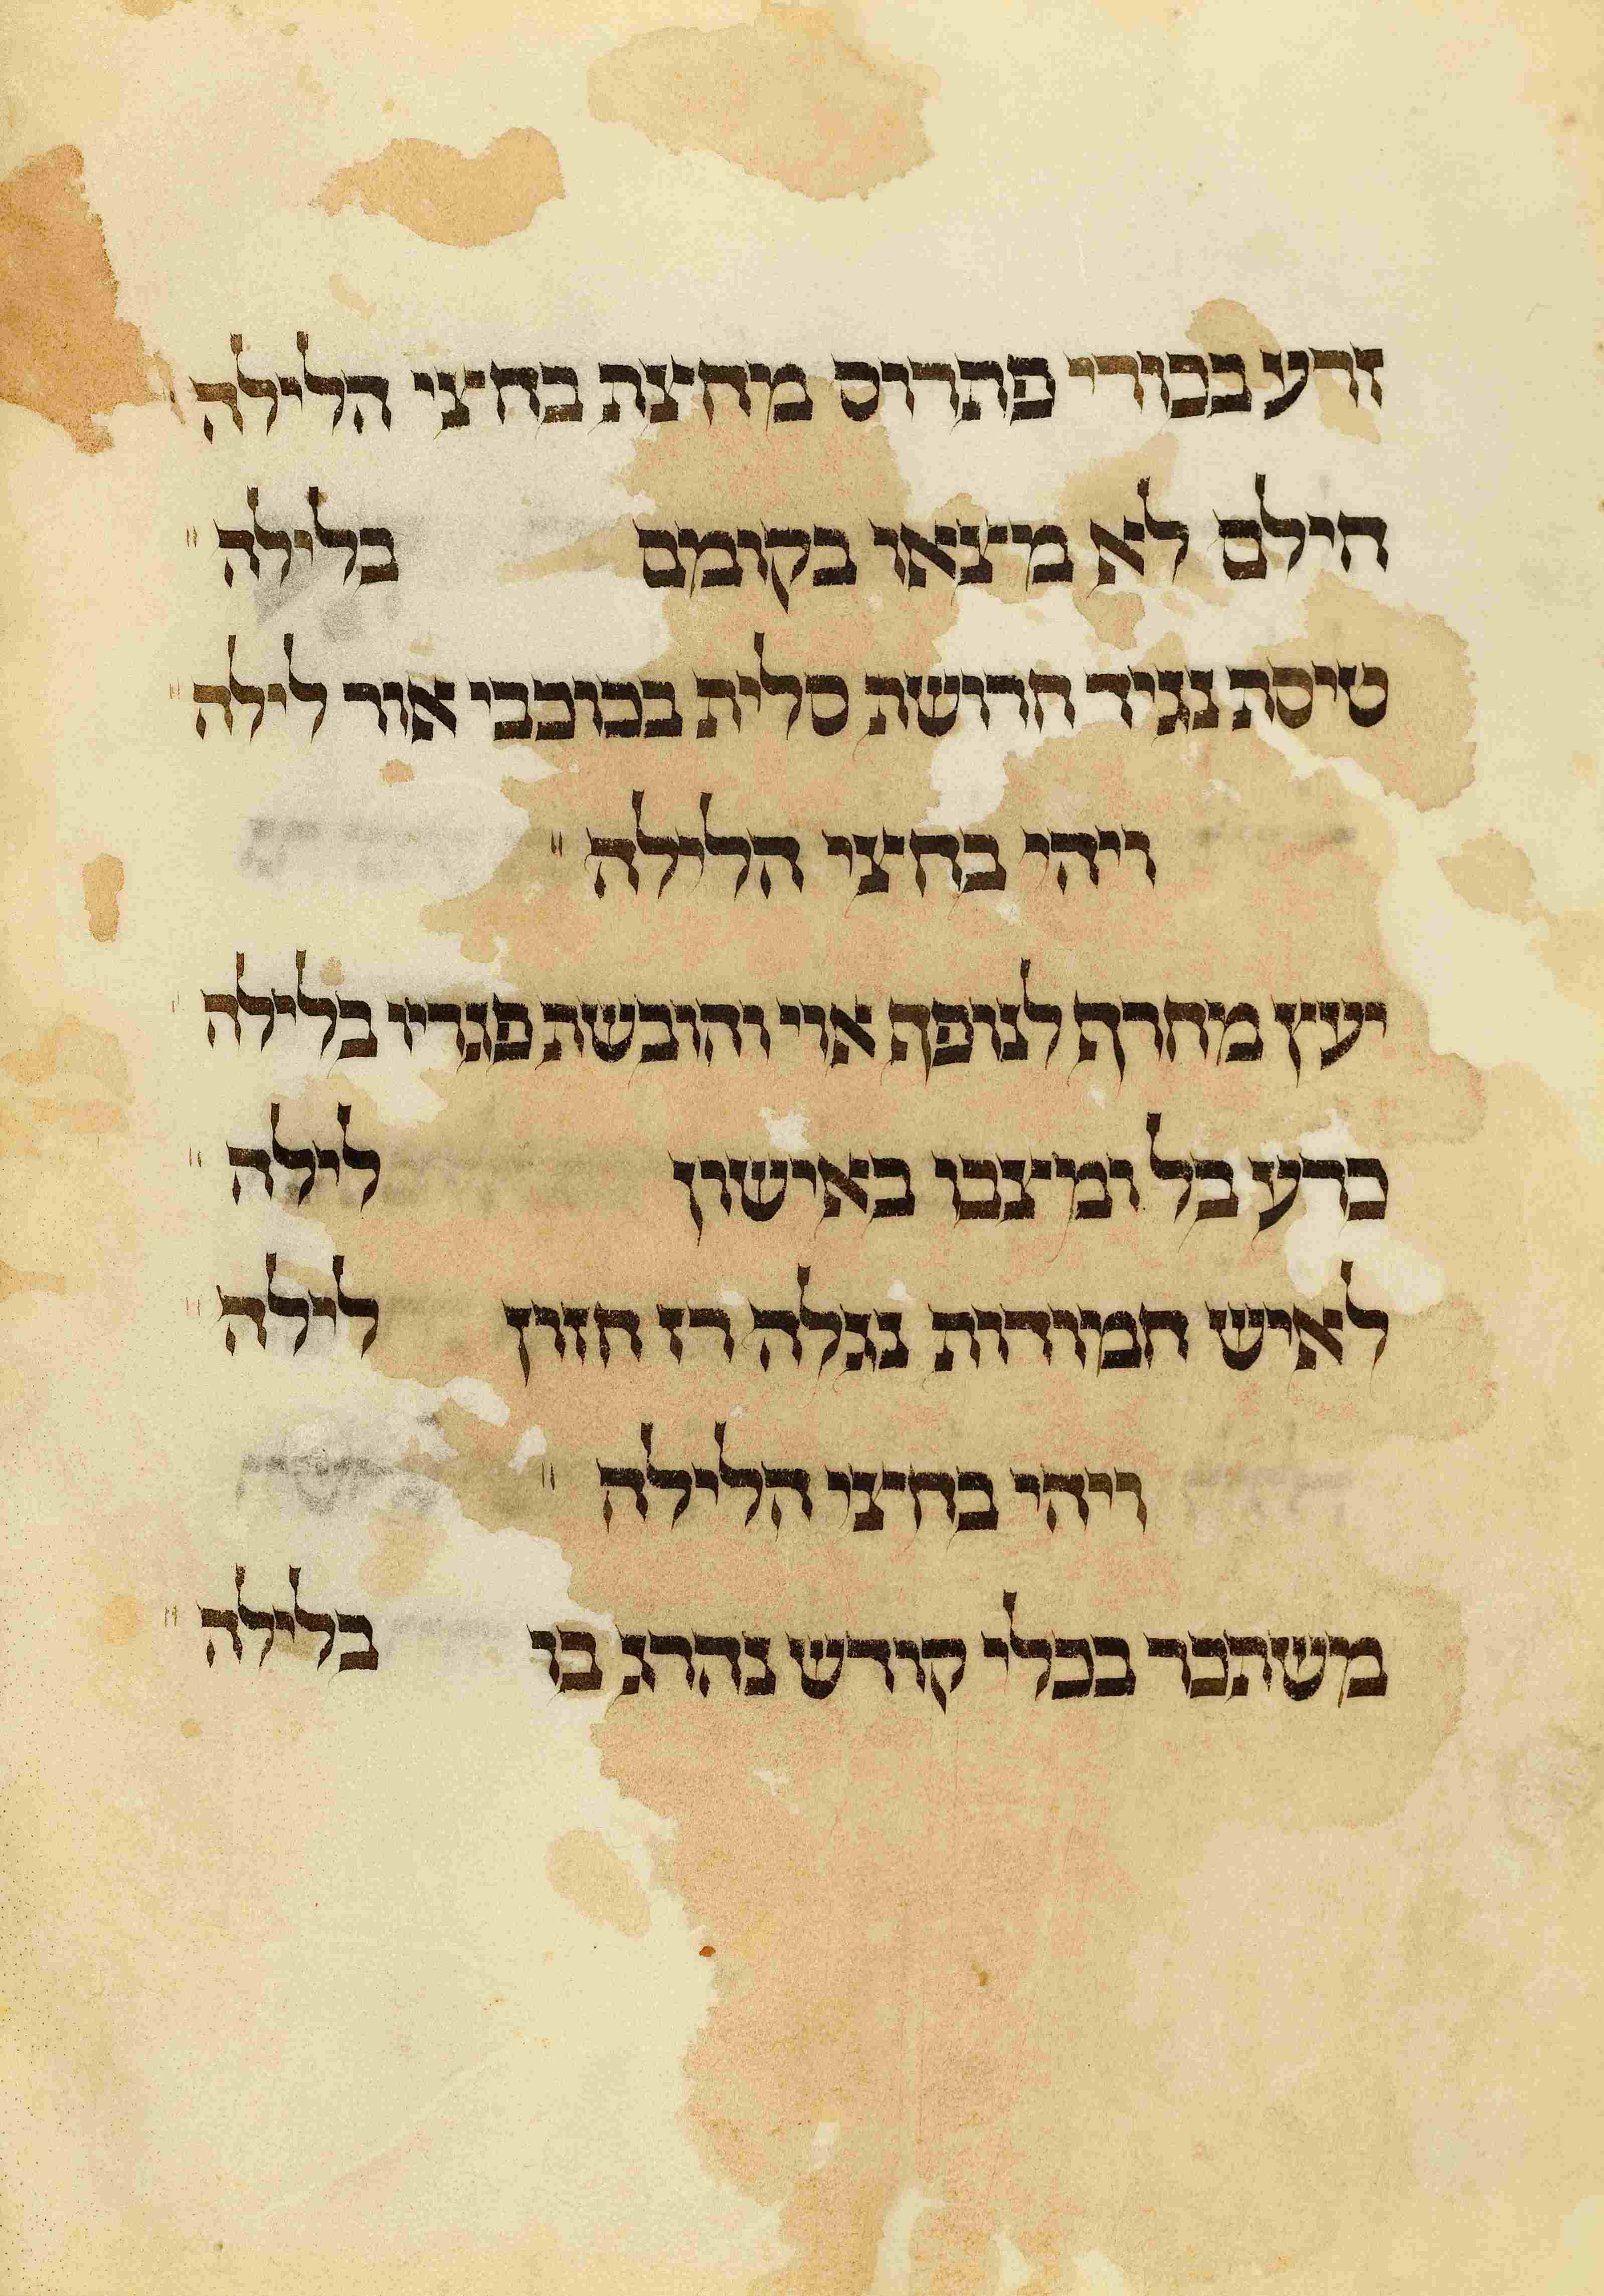 זרע בכורי פתרוס מחצת בחצי הלילה
חילם לא מצאו בקומם בלילה
טיסת נגיד חרושת סלית בכוכבי אור לילה
ויהי בחצי הלילה
יעץ מחרף לנופף אוי והובשת פגריו בלילה
כרע בל ומצבו באישון לילה
לאיש חמודות נגלה רז חזון לילה
ויהי בחצי הלילה
משתכר בכלי קודש נהרג בו בלילה